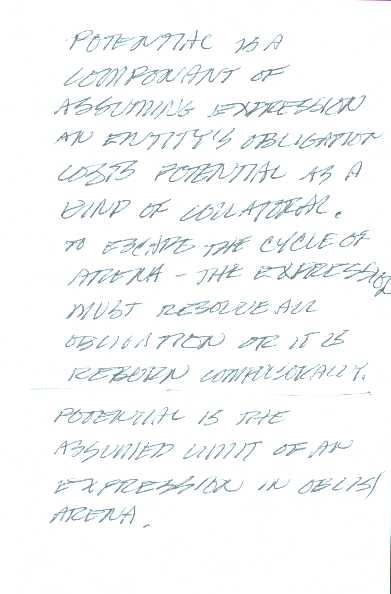 POTENTIAL IS A
COMPONANT OF
ASSUMING EXPRESSION
AN ENTITY'S OBLIGATION
COSTS POTENTIAL AS A
KIND OF COLLATERAL.
TO ESCAPE THE CYCLE OF
ARENA - THE EXPRESSION
MUST RESOLVE ALL
OBLIGATION OR IT IS
REBORN COMPULSORALLY.
POTENTIAL IS THE
ASSUMED LIMIT OF AN
EXPRESSION IN
ARENA.